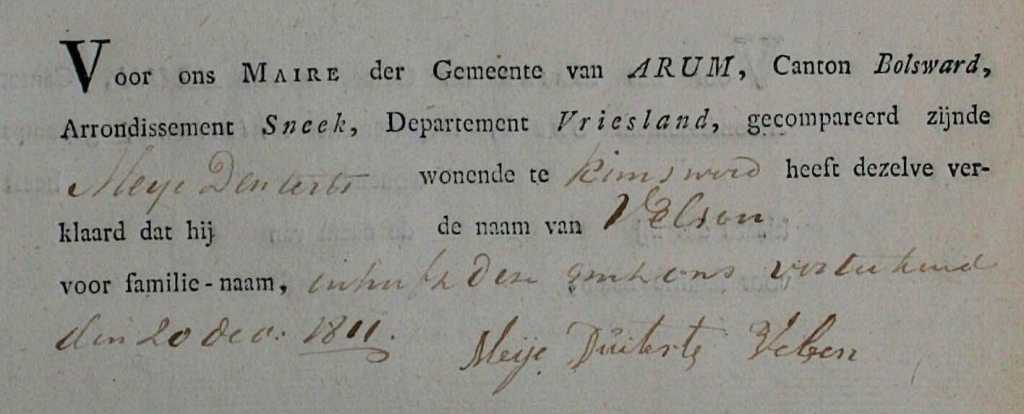 Voor ons MAIRE der Gemeente van ARUM, Canton Bolsward,
Arrondissement Sneek, Departement Vriesland, gecompareerd zijnde
Meije wonende te Kimswerd heeft dezelve ver-
klaard dat hij de naam van Velsen
voor familie-naam, en heeft deze met ons vertekend
den 20 dec. 1811. Meije Duiterts Velsen